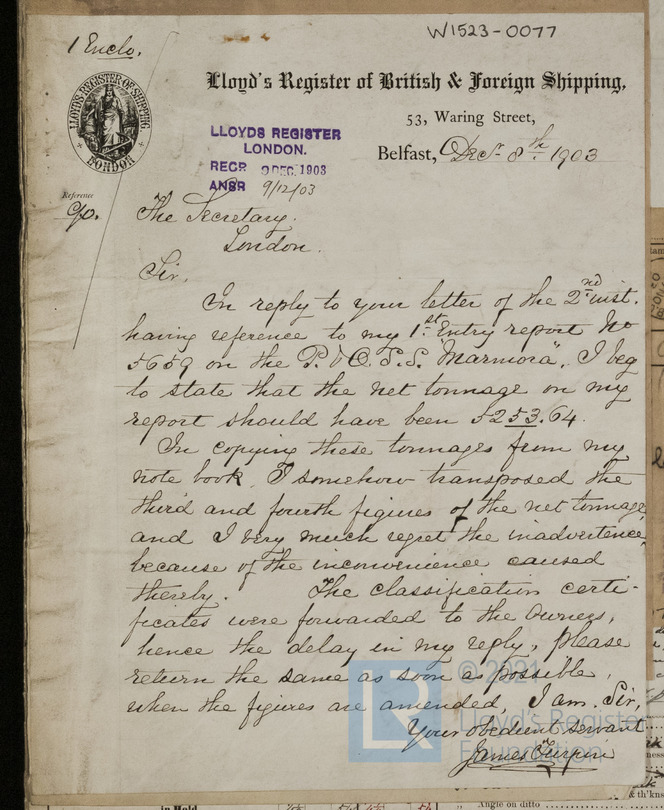 W1523-0077
1 Enclo.
LLOYD'S REGISTER OF SHIPPING
LONDON
Lloyd's Register of British & Foreign Shipping,
53, Waring Street,
Belfast, Decr. 8th 1903
LLOYDS REGISTER
LONDON.
RECD 9 DEC. 1903
ANSR 9/12/03
Reference
The Secretary.
London.
Sir,
In reply to your letter of the 2nd inst.
having reference to my 1st Entry report No
5659 on the P. & O. S.S. "Marmora", I beg
to state that the net tonnage on my
report should have been 5253.64.
In copying these tonnages from my
note book, I somehow transposed the
third and fourth figures of the net tonnage,
and I very much regret the inadvertence,
because of the inconvenience caused
thereby. The classification certi-
ficates were forwarded to the Owners,
hence the delay in my reply, please
return the same as soon as possible,
when the figures are amended, I am, Sir,
Your obedient servant
James Turpin
© 2021
LR
Lloyd's Register
Foundation
in Hold
Angle on ditto
& th'kns